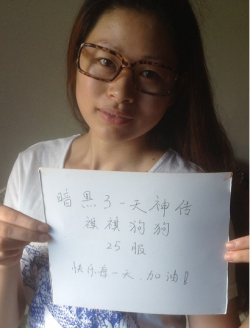 暗黑3一天神估
祺祺狗狗
25服
快乐每一天.加油!